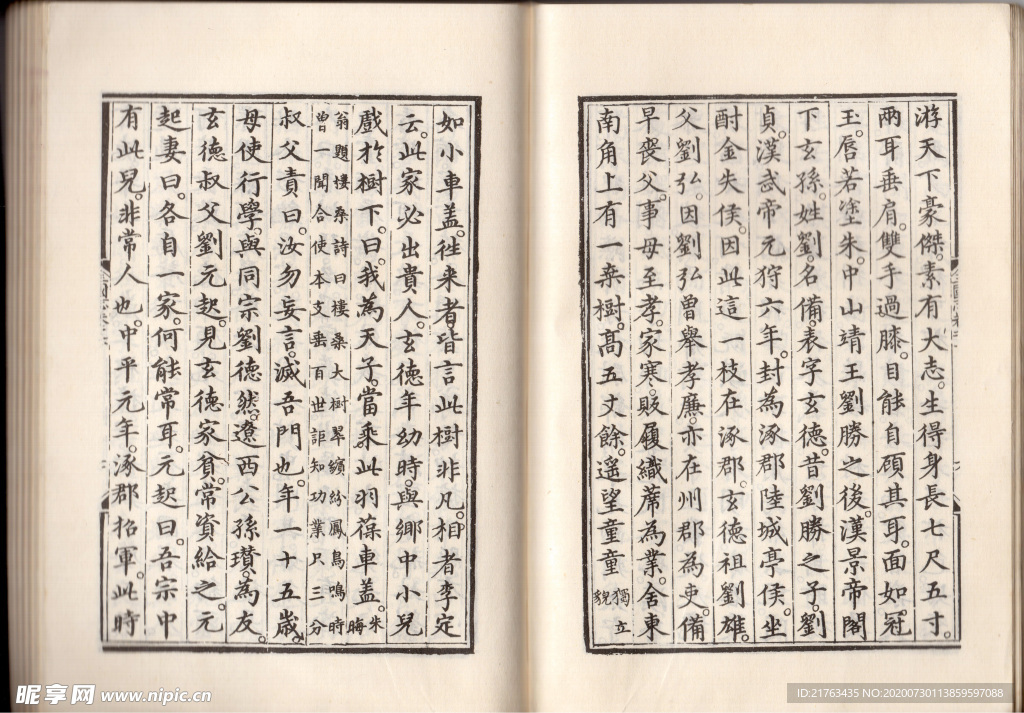 游天下豪傑。素有大志。生得身長七尺五寸。
兩耳垂肩。雙手過膝。目能自顧其耳。面如冠
玉。唇若塗朱。中山靖王劉勝之後。漢景帝閣
下玄孫。姓劉。名備。表字玄德。昔劉勝之子。劉
貞。漢武帝元狩六年。封為涿郡陸城亭侯。坐
酎金失侯。因此這一枝在涿郡。玄德祖劉雄。
父劉弘。因劉弘曾舉孝廉。亦在州郡為吏。備
早喪父。事母至孝。家寒。販履織席為業。舍東
南角上有一桒樹。高五丈餘。遙望童童
獨立
貌
如小車盖。徃来者。皆言此樹非凡。相者李定
云。此家必出貴人。玄德年幼時。與鄉中小兒
戲於樹下。曰。我為天子。當乘此羽葆車盖。
朱晦
翁題樓桑詩曰樓桑大樹翠繽紛鳳鳥鳴時
曾一聞合使本支垂百世詎知功業只三分
叔父責曰。汝勿妄言。滅吾門也。年一十五歲。
母使行學。與同宗劉德然。遼西公孫瓚。為友。
玄德叔父劉元起。見玄德家貧。常資給之。元
起妻曰。各自一家。何能常耳。元起曰。吾宗中
有此兒。非常人也。中平元年。涿郡招軍。此時
昵享网 www.nipic.cn
ID:21763435 NO:20200730113859597088